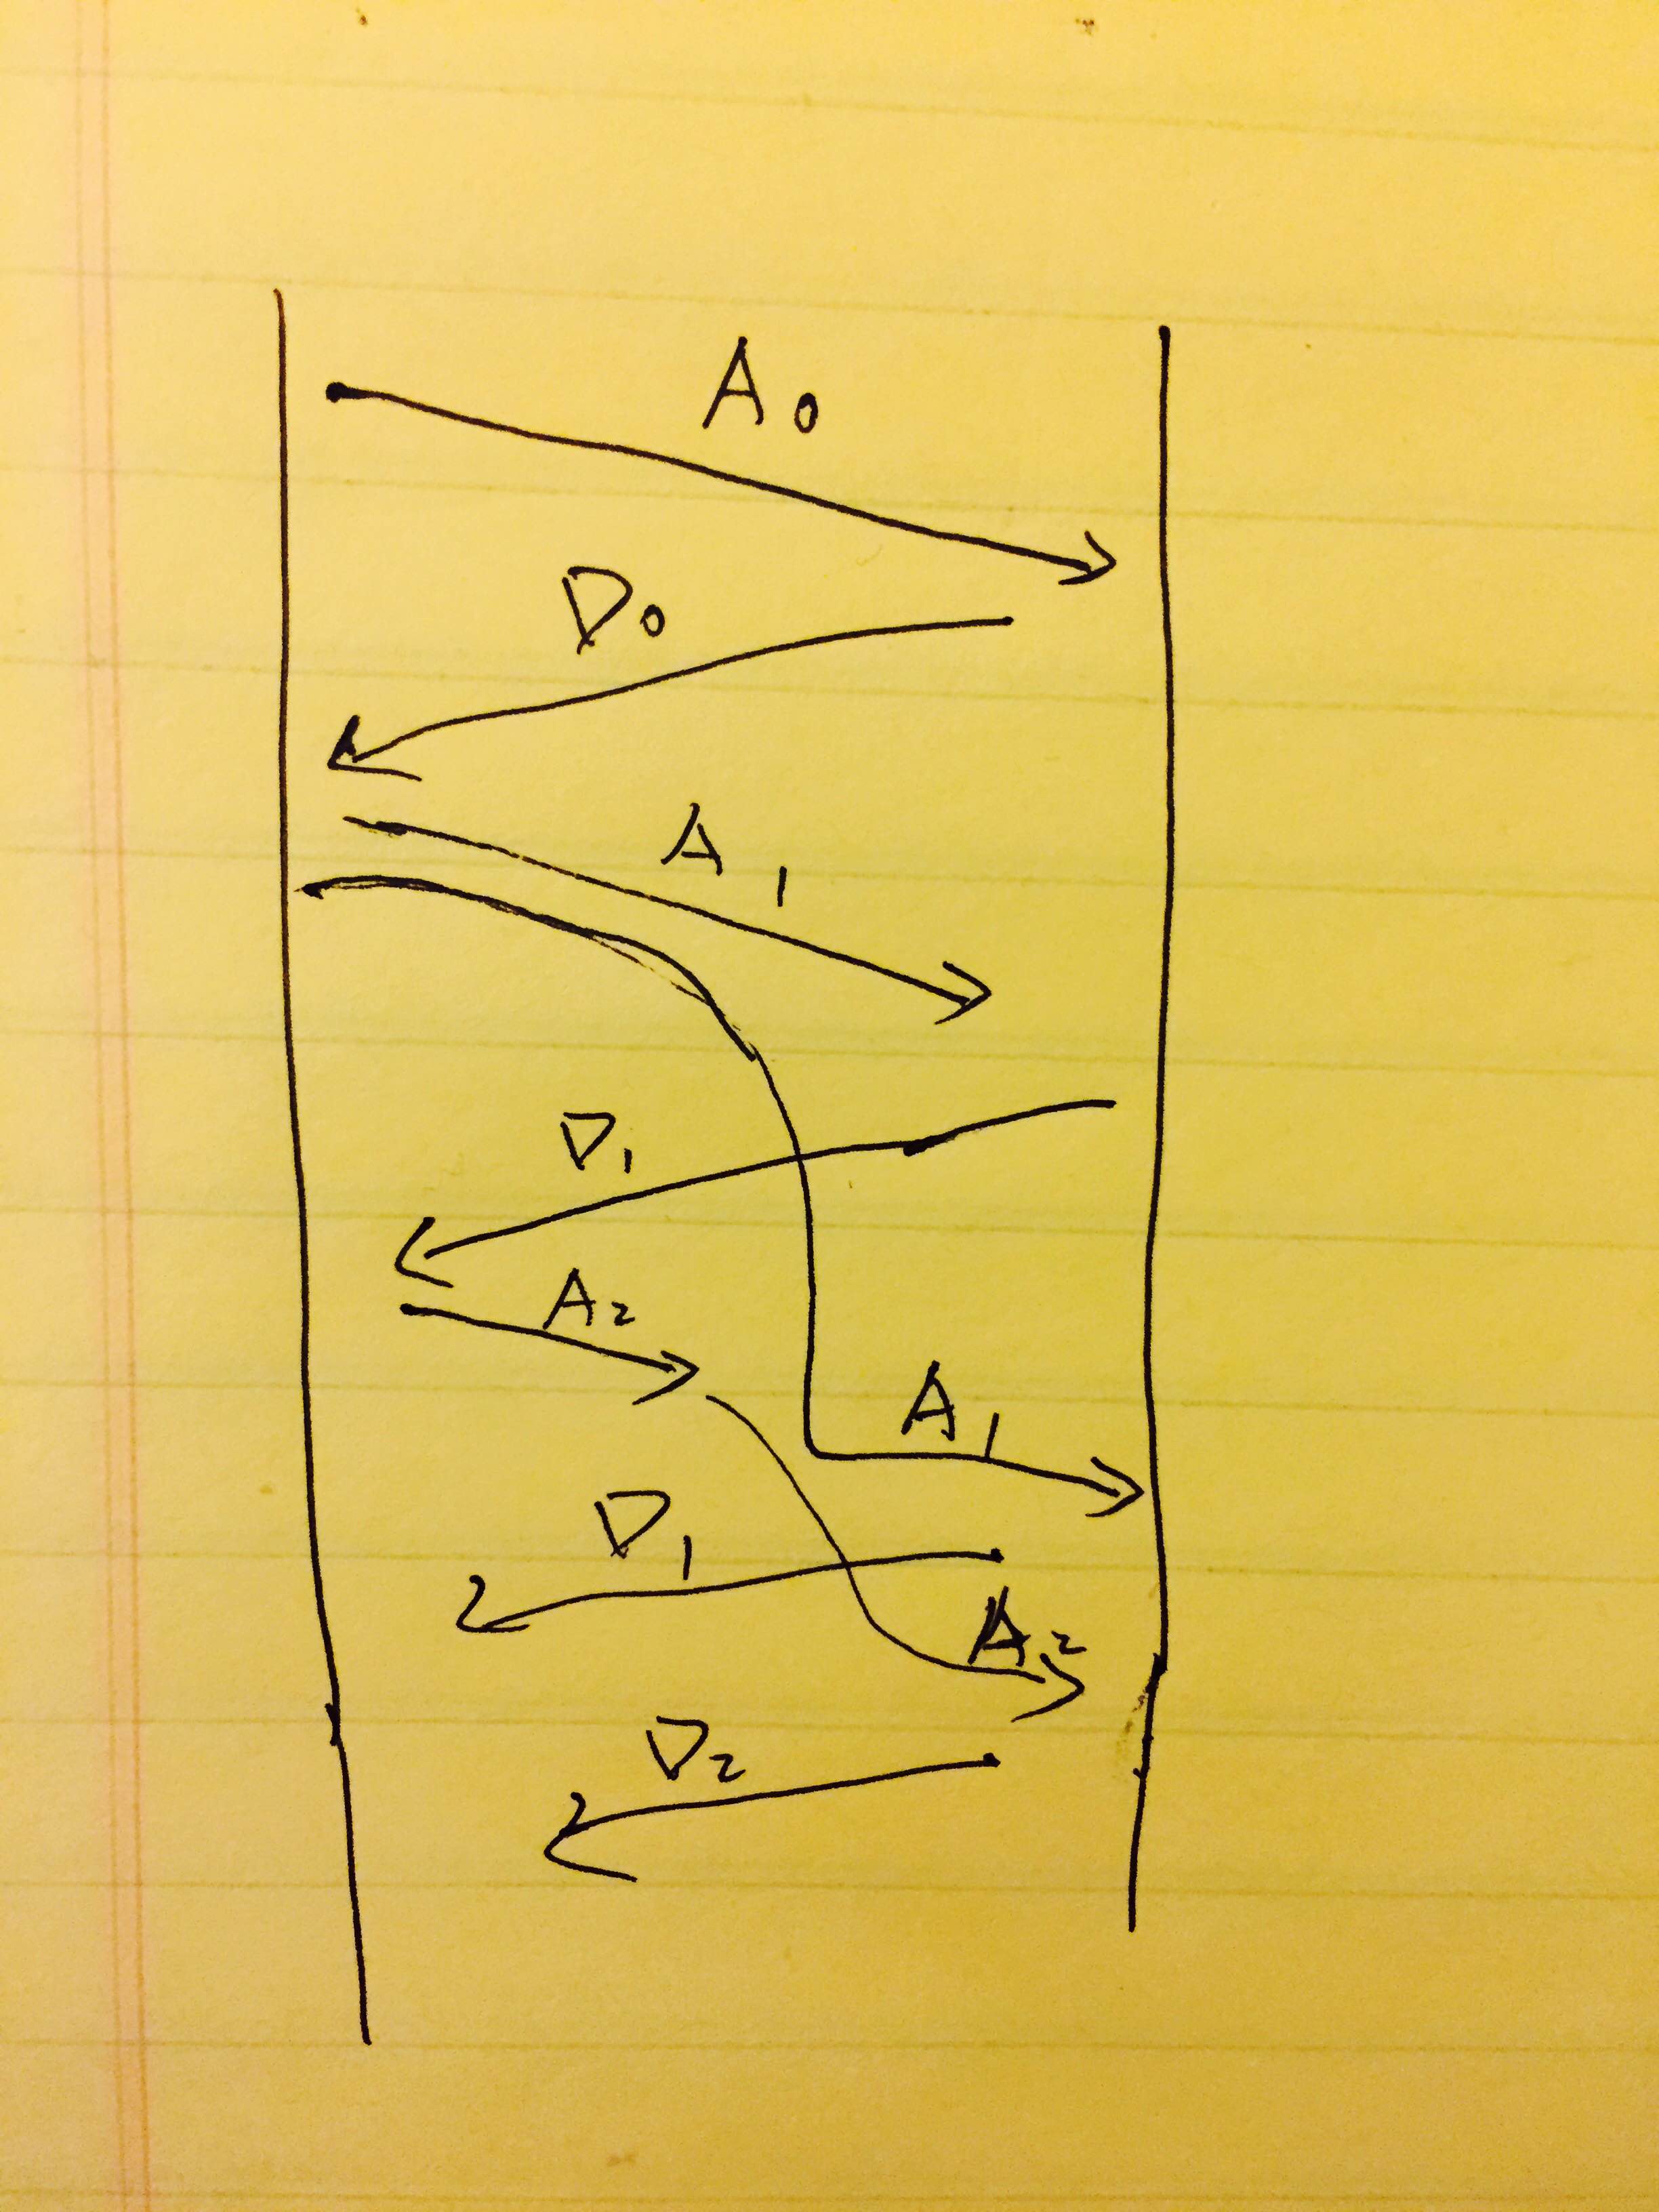 A0
D0
A1
D1
A2
A1
D1
A2
D2